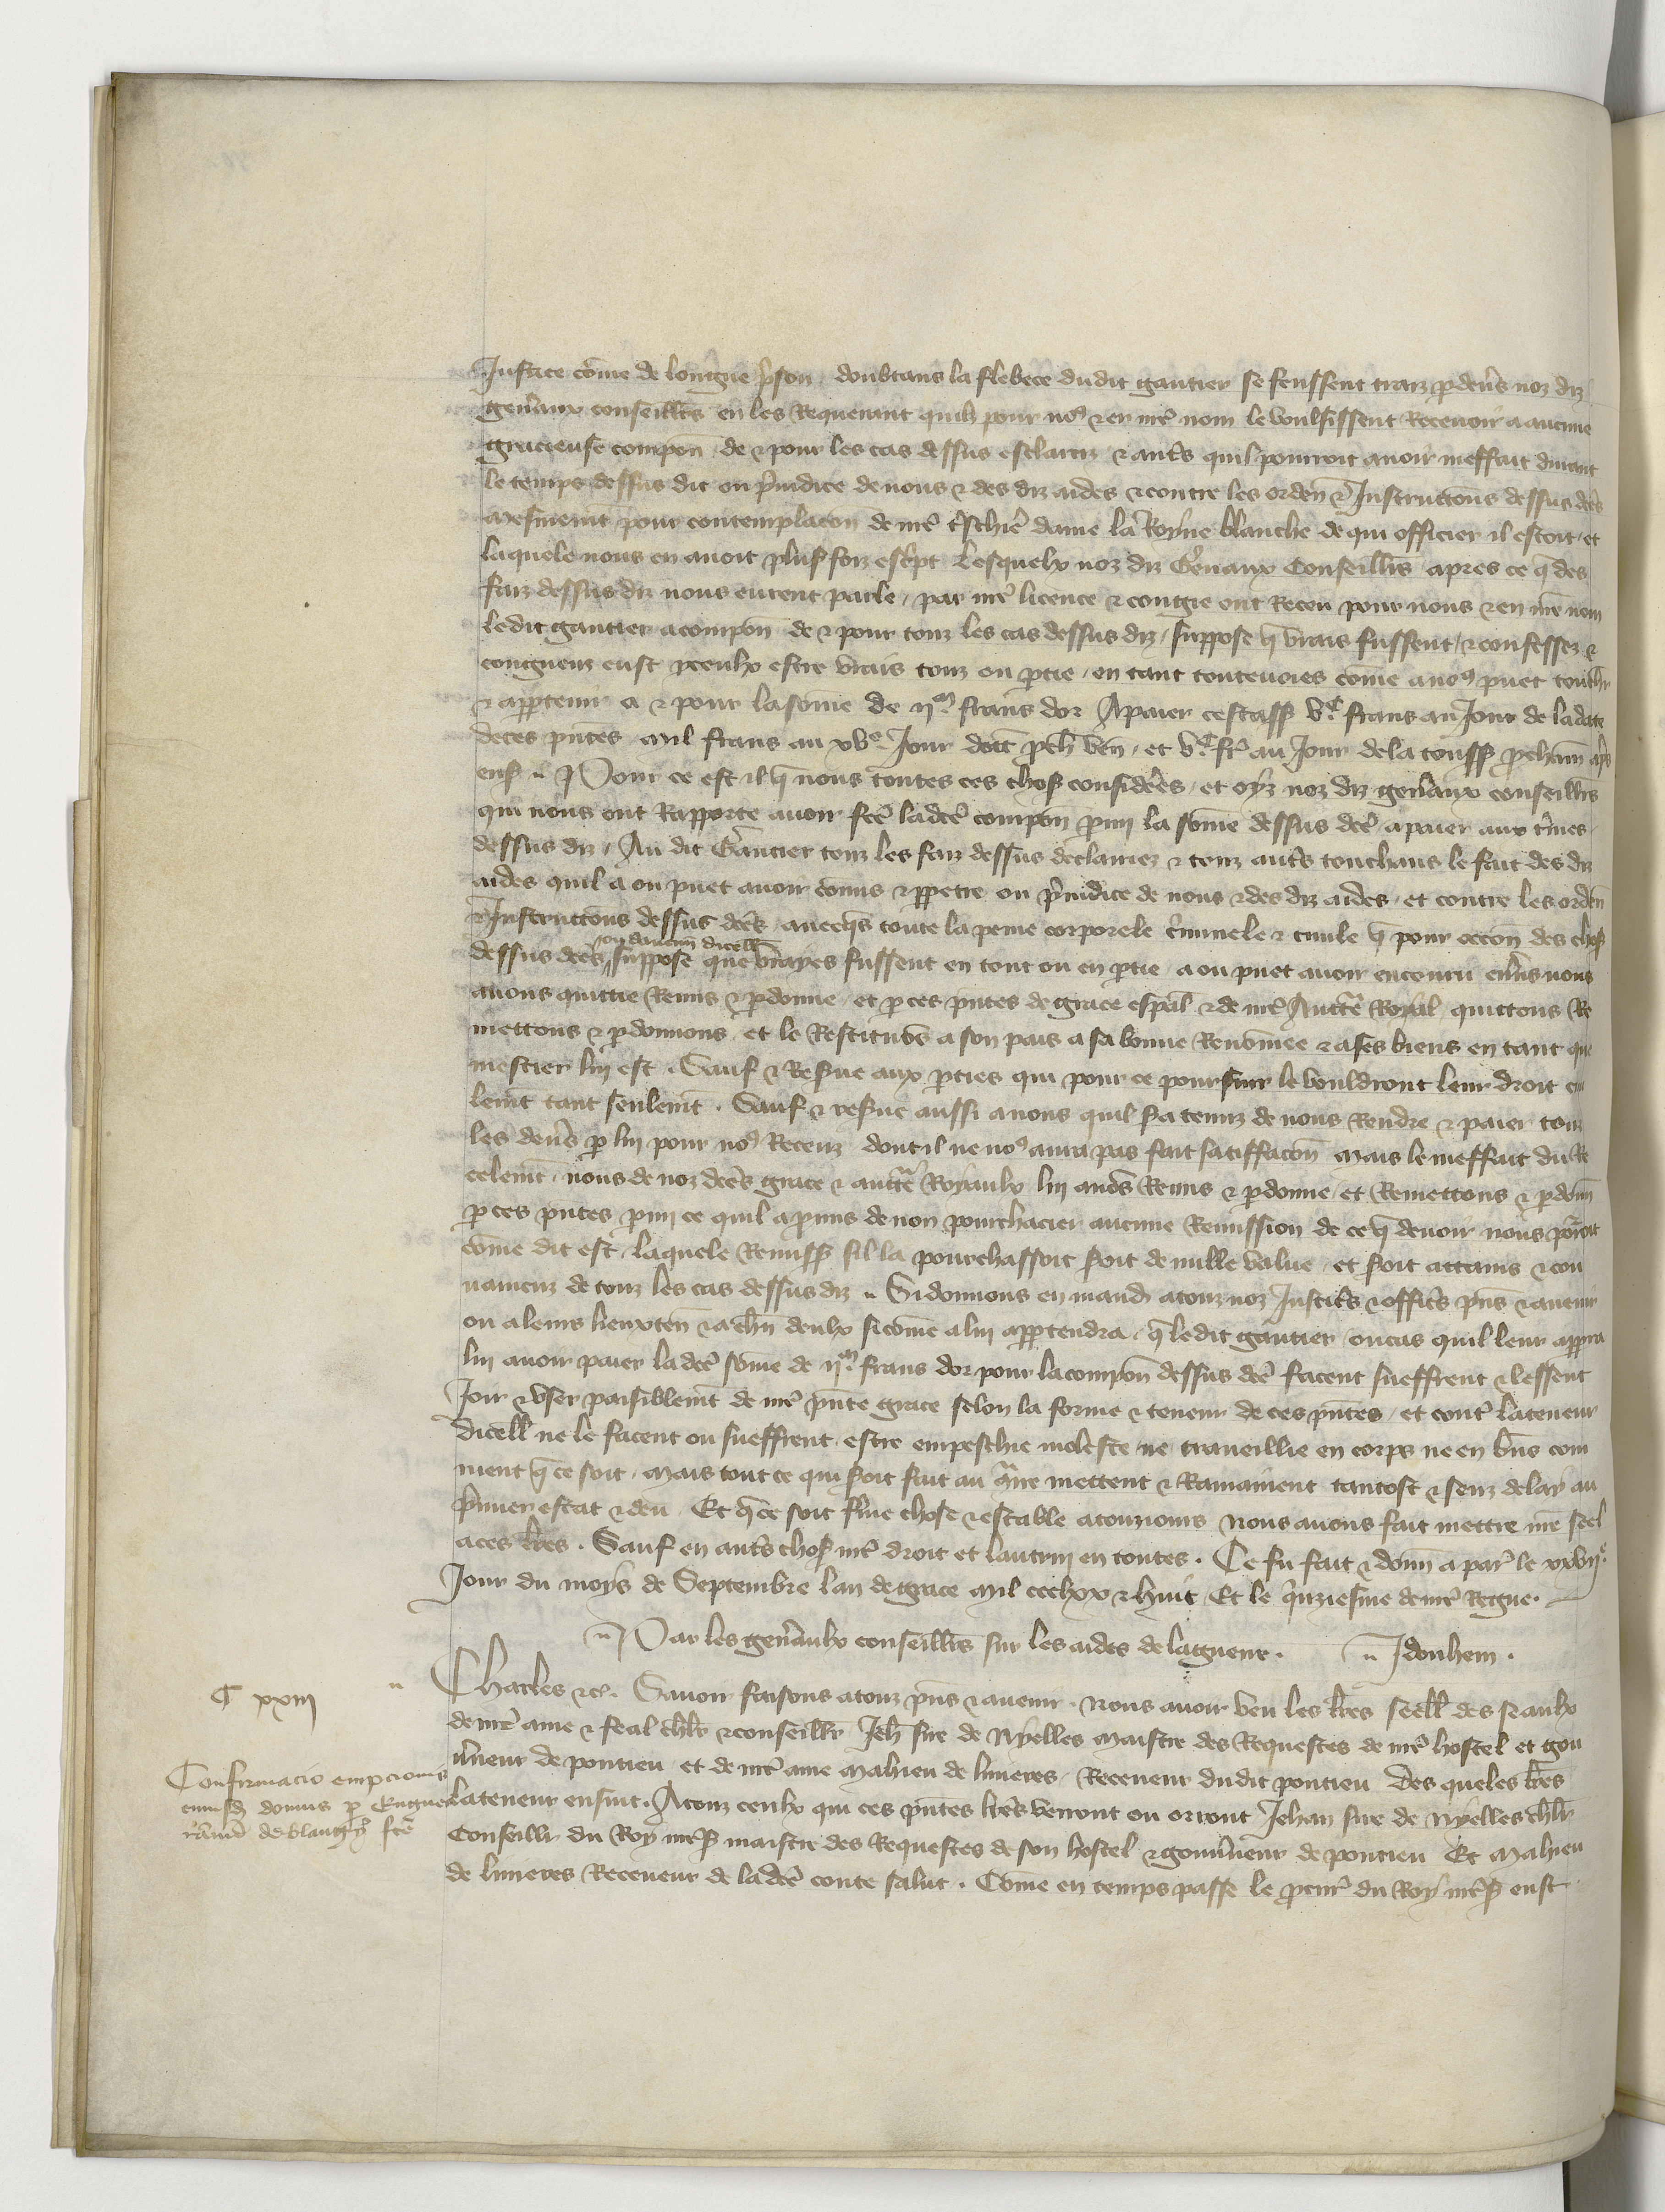 Justice cõme de longue p̃son / doubtans la flebece dudit gautier se feussent traiz p deũs noz diz
gen̄aux conseillr̃s en les Requerant quilz pour noꝰ & en nr̃e nom le voulsissent Recevoir a aucune
gracieuse compoñ de & pour les cas dessus esclarciz & autr̃s quil pourroit avoir meffait durant
le temps dessus dit ou p̃iudice de nous & des diz aides & contre les ordeñ & Instructiõns dessus dc̃es
mesment pour contemplac̃on de nr̃e tr̃schiẽ dame la Royne blanche de qui officier il estoit / et
laquele nous en avoit plus̃ foiz esc̃pt Lesquelx noz diz Geñaux Conseillrs̃ apres ce q̃ des
faiz dessus diz nous eurent parle / par nr̃e licence & congie ont Receu pour nous & en nr̃e nom
ledit gautier a compoñ de & pour touz les cas dessus diz / suppose q̃ vrais fussent / & confessez &
congneuz eust yceulx estre vrais touz ou ptie / en tant toutevoies cõme a noꝰ puet touchr̃
& apptenir a & pour la sõme de ijᵐ frans dor A paier cestass̃ vᶜ frans au Jour de la date
de ces p̃ntes mil frans au xvᵉ Jour doct̃ pch̃ veñ / et vᶜ fr̃ au Jour de la touss̃ pchaiñ apr̃s
ens̃ Pour ce est il q̃ nous toutes ces chos̃ considẽes / et oyz noz diz geñaux conseillrs̃
qui nous ont Rapporte avoir fc̃e ladc̃e compoñ pmi la sõme dessus dc̃e a paier aux t̃mes
dessus diz / Au dit Gautier touz les faiz dessus declairiez & touz autr̃s touchans le fait des diz
aides quil a ou puet avoir cõmis & ppetre ou p̃iudice de nous & des diz aides / et contre les ordeñ
& Instructiõns dessus dc̃es / avecq̃s toute la peine corporele c̃minele & civile q̃ pour occõn des chos̃
ou daucuñ dicell̃
dessus dc̃es suppose que vrayes fussent en tout ou en ptie a ou puet avoir encouru env̄s nous
avons quittie Remis & pdonne / et p ces p̃ntes de grace esp̃al & de nr̃e Auctẽ Royal quittons Re
mettons & pdonnons / et le Restituõs a son pais a sa bonne Renõmee & a ses biens en tant que
mestier lui est . Sauf & Res̃ve aux pties qui pour ce poursuir le vouldront leur droit civi
lemt̃ tant seulemt̃ . Sauf & res̃ve aussi a nous quil s̃a tenuz de nous Rendre & paier touz
les deñs p lui pour noꝰ Receuz dont il ne noꝰ aura pas fait satiffac̃on mais le meffait du Re
celemt̃ / nous de noz dc̃es grace & auctẽ Royaulx lui avõs Remis & pdonne / et Remettons & pdoñn
p ces p̃ntes pmi ce quil a pmis de non pourchacier aucune Remission de ce q̃ devoir nous porroit
cõme dit est / laquele Remiss̃ sil la pourchassoit soit de nulle value / et soit attains & con
vaincuz de touz les cas dessus diz Si donnons en mand̃ a touz noz Justic̃s & offic̃s p̃ns & avenir
ou a leurs lieuxteñ & a chñ deulx sicõme a lui apptendra / q̃ ledit gautier / ou cas quil leur apprra
lui avoir paier ladc̃e sõme de ijᵐ frans dor pour la compoñ dessus dc̃e facent sueffrent & lessent
Joir & user paisiblemt̃ de nr̃e p̃nte grace selon la forme & teneur de ces p̃ntes / et cont̃ la teneur
dicell̃ ne le facent ou sueffrent / estre empeschie moleste ne traveillie en corps ne en bñs com
ment q̃ ce soit / mais tout ce qui soit fait au c̃ure mettent & Ramainent tantost & senz delay au
p̃mier estat & deu / Et q̃ ce soit f̃me chose & estable a touziours nous avons fait mettre nr̃e seel
a ces lr̃es . Sauf en autr̃s chos̃ nr̃e droit et lautrui en toutes . Ce fu fait & donñ a par̃ le xxvijᵉ
Jour du moys de Septembre lan de grace mil ccclxx & huit / Et le q̃nziesme de nr̃e Regne .
Par les geñaulx conseillr̃s sur les aides de la guerre . J douhem .
C xxiij
Charles &c̃ . Savoir faisons a touz p̃ns & avenir . Nous avoir veu les lr̃es seell̃ des seaulx
de nr̃e ame & feal chlr̃ & conseillr̃ Jeh̃ sire de Nyelles maistre des Requestes de nr̃e hostel et gou
v̄neur de pontieu / et de nr̃e ame Mahieu de linieres / Receveur dudit pontieu Des queles lr̃es
Confirmacio empcionis
cuiusd̃ domus p Engue
la teneur ensuit . A touz ceulx qui ces p̃ntes lr̃es verront ou orront Jehan sire de Nyelles chlr̃
rañu de blang̃ fc̃e
Conseillr̃ du Roy nr̃es̃ maistre des Requestes de son hostel & gouv̄neur de pontieu Et Mahieu
de linieres Receveur de ladc̃e conte salut . Cõme en temps passe le pcur̃ du Roy nr̃es̃ eust